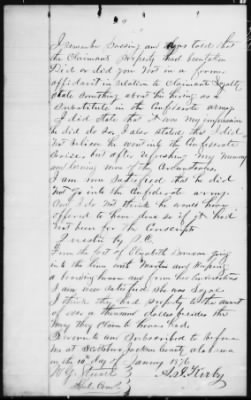 I remember hearing and was told that
the Claimants property had been taken
Did or did you not in a former
affidavit in relation to Claimants Loyalty
state something about his hiring as a
Substitute in the Confederate army
I did state that it was my impression
he did do so I also stated that I did
not believe he went into the Confederate
Service but after refreshing my memory
and learning more of the
I am now satisfied that he did
not go into the Confederate army
And I do not think he would have
offered to have done so if it had
not been for the Conscripts
Question by
From the fact of Elizabeth
into the lines with
a boarding house any
I am now satisfied she was Loyal
I think they had property to the amount
of over a thousand dollars besides the
they Claim to have had
Sworn to and Subscribed to before
me at Scottsboro Jackson County Alabama
on the 10th day of January 1876
Kirby
Com